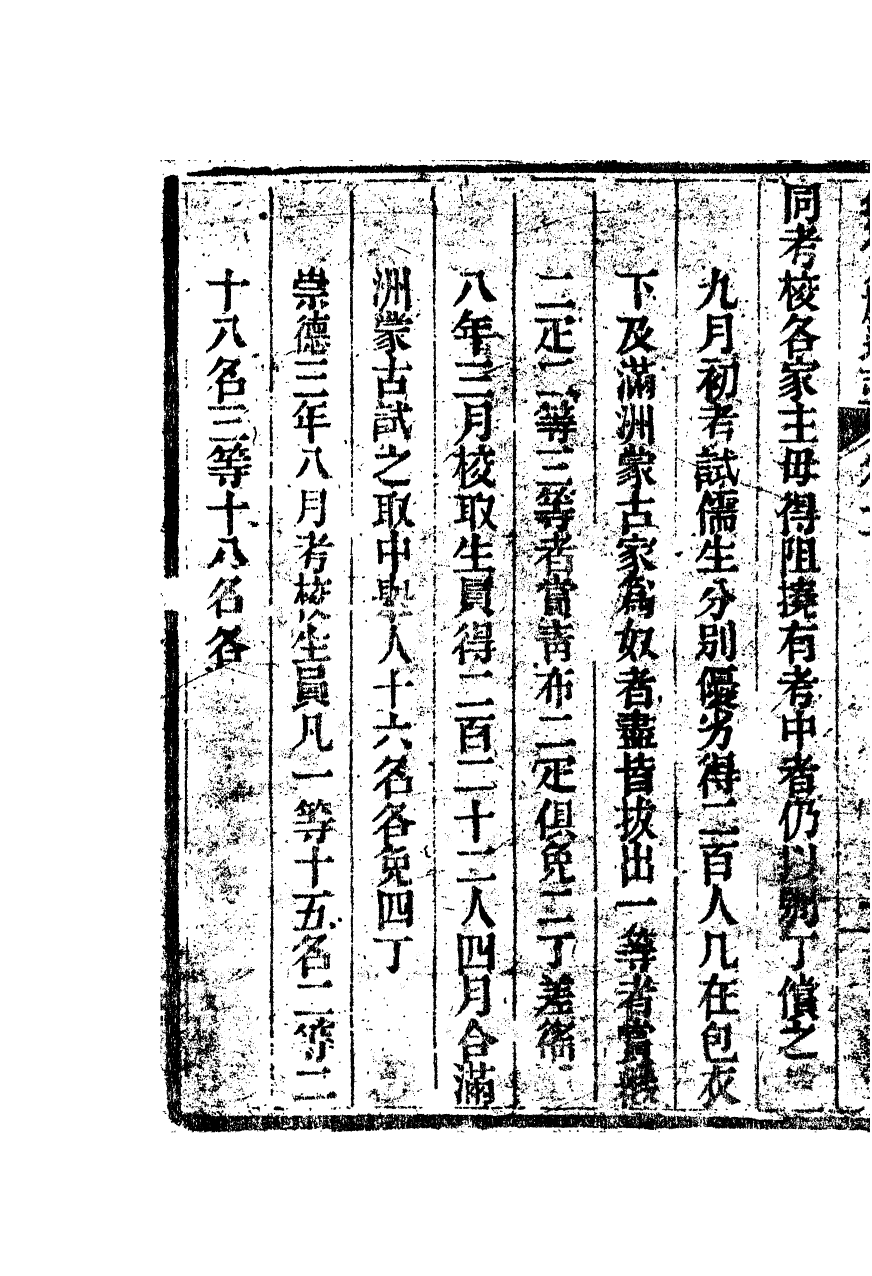 同考校各家主毋得阻撓有考中者仍以別丁償之
九月初考試儒生分別優劣得二百人凡在包衣
下及滿洲蒙古家為奴者盡皆拔出一等者賞緞
二疋二等三等者賞靑布二疋俱免二丁差徭
八年三月校取生員得二百二十二人四月合滿
洲蒙古試之取中舉人十六名各免四丁
崇德三年八月考校生員凡一等十五名二等二
十八名三等十八名各